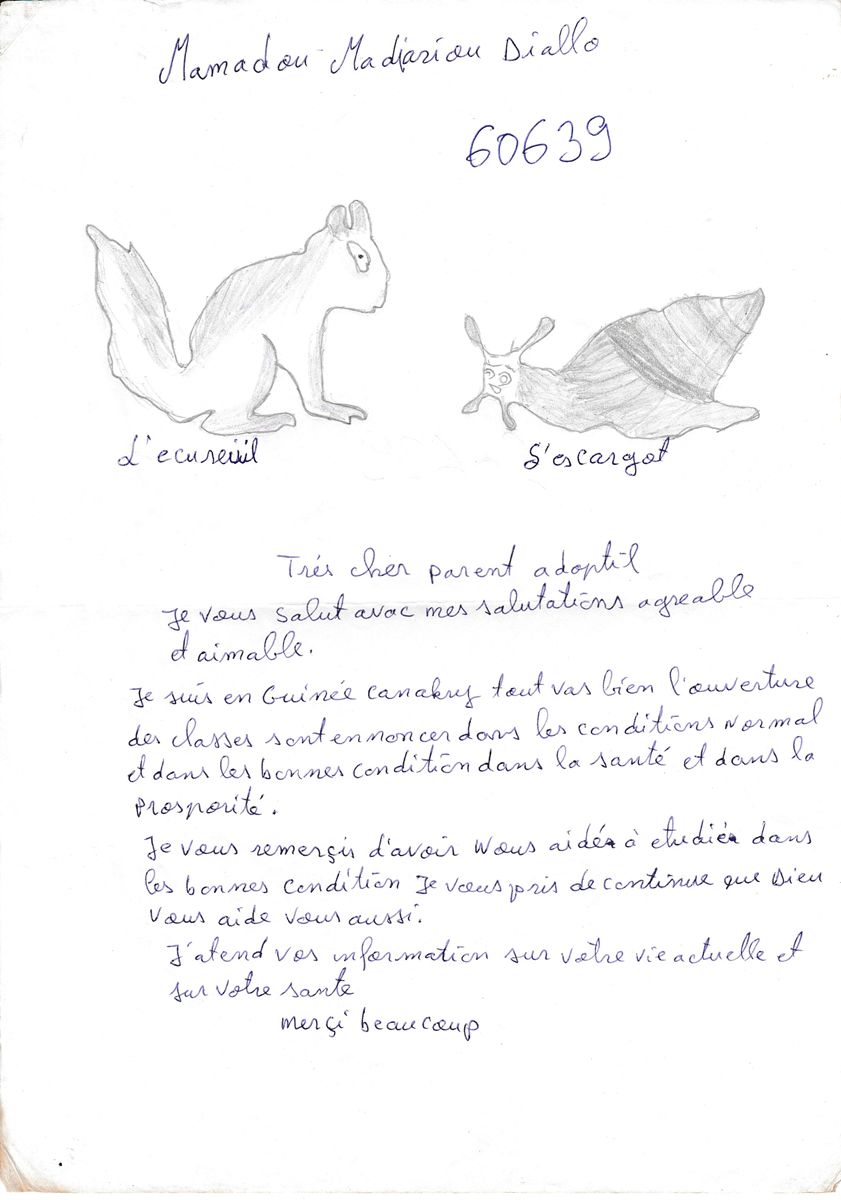 Mamadou Madjariou Diallo
60639
L'ecureiiil
S'escargot
Trés cher parent adoptil
Je vous salut avoc mes salutations agreable
et aimable.
Je suis en Guinée canakry tout vas bien l'ouverture
des classes sont ennoncer dans les conditions normal
et dans les bonnes condition dans la santé et dans la
prosporité.
Je vous remerçis d'avoir Wous aidér à etudiér dans
les bonnes condition Je vous pris de continue que Dieu
vous aide vous aussi.
J'atend vos information sur votre vie actuelle et
sur votre sante
merçi beaucoup